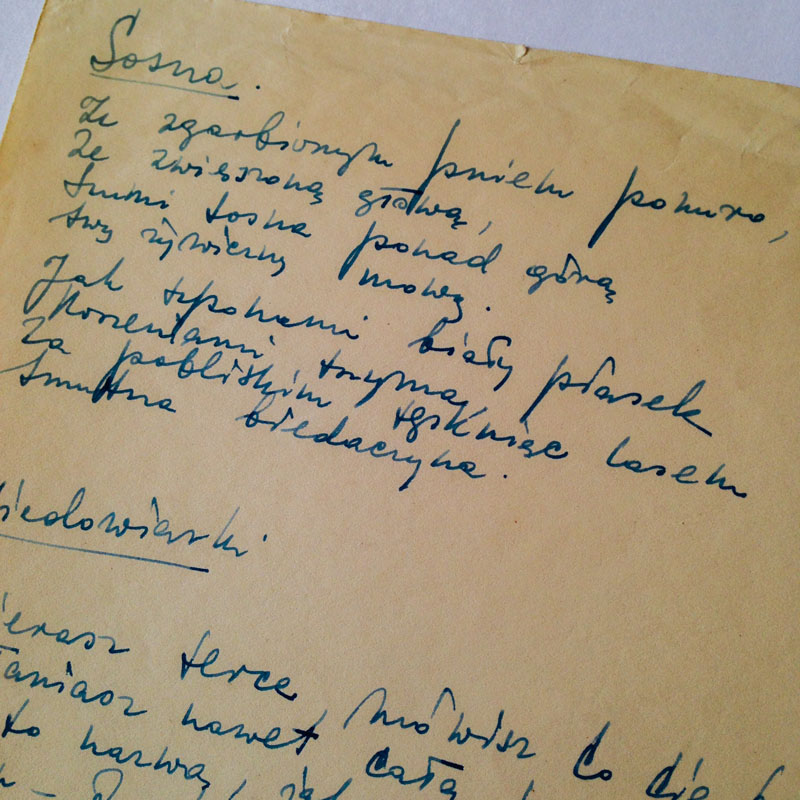 Sosna.
Ze zgarbionym pniem ponuro,
Ze zwieszoną głową,
Szumi sosna ponad górą
swą żywiczną mową.
Jak szponami biały piasek
Korzeniami trzyma
Za pobliskim tęskniąc lasem
Smutna biedaczyna.
iedowiarki
ierasz serce, mówisz co cię b
łaniasz nawet całą
to nazwą